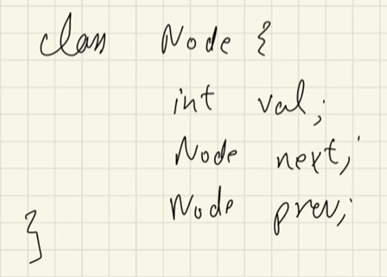 class Node {
int val;
Node next;
Node prev;
}